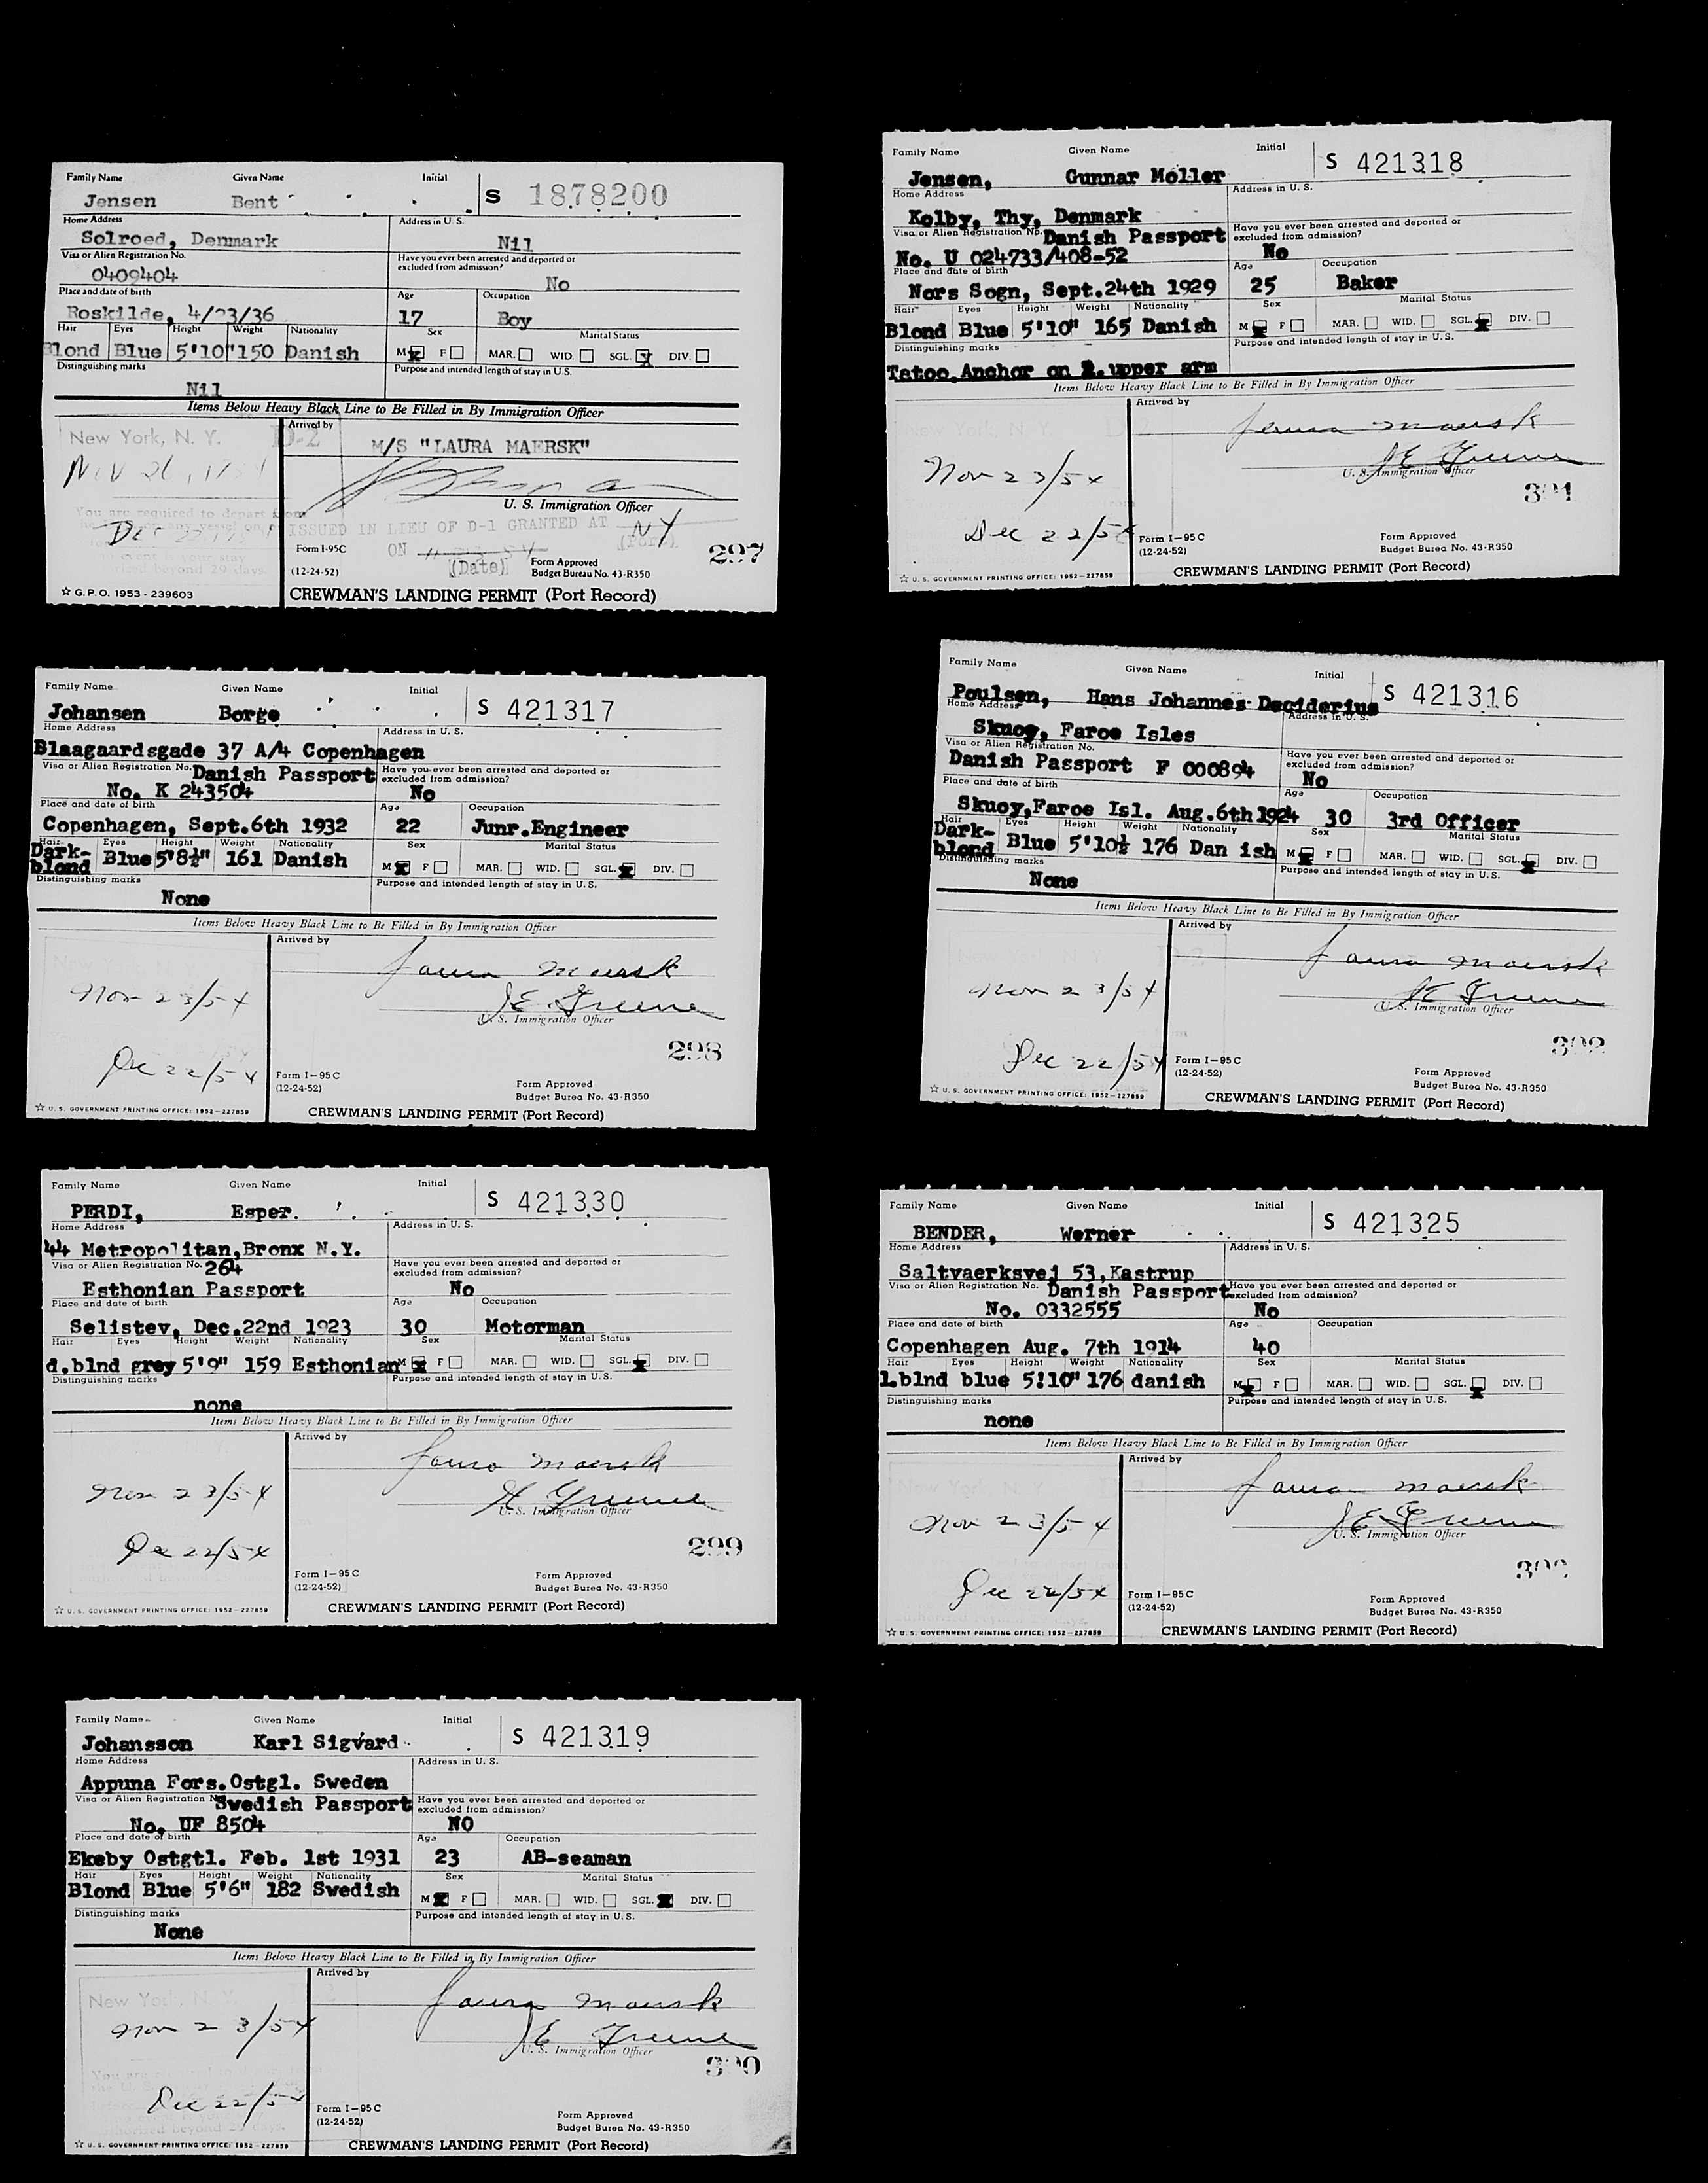 Family Name Given Name Initial S 1878200
Jensen Bent
Home Address Address in U. S.
Solroed, Denmark Nil
Visa or Alien Registration No. Have you ever been arrested and deported or excluded from admission?
0409404 No
Place and date of birth Age Occupation
Roskilde, 4/23/36 17 Boy
Hair Eyes Height Weight Nationality Sex Marital Status
Blond Blue 5'10" 150 Danish M F MAR. WID. SGL. DIV.
Distinguishing marks Purpose and intended length of stay in U.S.
Nil
Items Below Heavy Black Line to Be Filled in By Immigration Officer
New York, N. Y. D-2 Arrived by
M/S "LAURA MAERSK"
U. S. Immigration Officer
You are required to depart from
ISSUED IN LIEU OF D-1 GRANTED AT NY
(Port)
ON 11 23 54
(Date)
297
Form I-95C
(12-24-52)
Form Approved
Budget Bureau No. 43-R350
☆ G.P.O. 1953 - 239603
CREWMAN'S LANDING PERMIT (Port Record)
Family Name Given Name Initial S 421317
Johansen Borge
Home Address Address in U. S.
Blaagaardsgade 37 A/4 Copenhagen
Visa or Alien Registration No. Danish Passport Have you ever been arrested and deported or excluded from admission?
No. K 243504 No
Place and date of birth Age Occupation
Copenhagen, Sept.6th 1932 22 Junr.Engineer
Hair Eyes Height Weight Nationality Sex Marital Status
Dark-blond Blue 5'8½" 161 Danish M F MAR. WID. SGL. DIV.
Distinguishing marks Purpose and intended length of stay in U.S.
None
Items Below Heavy Black Line to Be Filled in By Immigration Officer
Arrived by
Laura Maersk
Nov 23/54
JE Greene
U. S. Immigration Officer
298
Dec 22/54
Form I-95C
(12-24-52)
Form Approved
Budget Burea No. 43-R350
☆ U. S. GOVERNMENT PRINTING OFFICE: 1952-227859
CREWMAN'S LANDING PERMIT (Port Record)
Family Name Given Name Initial S 421330
PERDI, Esper.
Home Address Address in U. S.
44 Metropolitan,Bronx N.Y.
Visa or Alien Registration No. 264 Have you ever been arrested and deported or excluded from admission?
Esthonian Passport No
Place and date of birth Age Occupation
Selistev, Dec.22nd 1923 30 Motorman
Hair Eyes Height Weight Nationality Sex Marital Status
d.blnd grey 5'9" 159 Esthonian M F MAR. WID. SGL. DIV.
Distinguishing marks Purpose and intended length of stay in U.S.
none
Items Below Heavy Black Line to Be Filled in By Immigration Officer
Arrived by
Laura Maersk
Nov 23/54
JE Greene
U. S. Immigration Officer
299
Dec 22/54
Form I-95C
(12-24-52)
Form Approved
Budget Burea No. 43-R350
☆ U. S. GOVERNMENT PRINTING OFFICE: 1952-227859
CREWMAN'S LANDING PERMIT (Port Record)
Family Name Given Name Initial S 421319
Johansson Karl Sigvard
Home Address Address in U. S.
Appuna Fors.Ostgl. Sweden
Visa or Alien Registration No. Swedish Passport Have you ever been arrested and deported or excluded from admission?
No. UF 8504 NO
Place and date of birth Age Occupation
Ekeby Ostgtl. Feb. 1st 1931 23 AB-seaman
Hair Eyes Height Weight Nationality Sex Marital Status
Blond Blue 5'6" 182 Swedish M F MAR. WID. SGL. DIV.
Distinguishing marks Purpose and intended length of stay in U.S.
None
Items Below Heavy Black Line to Be Filled in By Immigration Officer
Arrived by
Laura Maersk
New York, N. Y.
Nov 23/54
JE Greene
U. S. Immigration Officer
300
Dec 22/54
Form I-95C
(12-24-52)
Form Approved
Budget Burea No. 43-R350
☆ U. S. GOVERNMENT PRINTING OFFICE: 1952-227859
CREWMAN'S LANDING PERMIT (Port Record)
Family Name Given Name Initial S 421318
Jensen, Gunnar Moller
Home Address Address in U. S.
Kolby, Thy, Denmark
Visa or Alien Registration No. Danish Passport Have you ever been arrested and deported or excluded from admission?
No. U 024733/408-52 No
Place and date of birth Age Occupation
Nors Sogn, Sept.24th 1929 25 Baker
Hair Eyes Height Weight Nationality Sex Marital Status
Blond Blue 5'10" 165 Danish M F MAR. WID. SGL. DIV.
Distinguishing marks Purpose and intended length of stay in U.S.
Tatoo Anchor on upper arm
Items Below Heavy Black Line to Be Filled in By Immigration Officer
Arrived by
Laura Maersk
New York, N. Y.
Nov 23/54
JE Greene
U. S. Immigration Officer
301
Dec 22/54
Form I-95C
(12-24-52)
Form Approved
Budget Burea No. 43-R350
☆ U. S. GOVERNMENT PRINTING OFFICE: 1952-227859
CREWMAN'S LANDING PERMIT (Port Record)
Family Name Given Name Initial S 421316
Poulsen, Hans Johannes Deciderius
Home Address Address in U. S.
Skuoy, Faroe Isles
Visa or Alien Registration No. Have you ever been arrested and deported or excluded from admission?
Danish Passport F 000894 No
Place and date of birth Age Occupation
Skuoy,Faroe Isl. Aug.6th 1924 30 3rd Officer
Hair Eyes Height Weight Nationality Sex Marital Status
Dark-blond Blue 5'10½ 176 Dan ish M F MAR. WID. SGL. DIV.
Distinguishing marks Purpose and intended length of stay in U.S.
None
Items Below Heavy Black Line to Be Filled in By Immigration Officer
Arrived by
Laura Maersk
Nov 23/54
JE Greene
U. S. Immigration Officer
302
Dec 22/54
Form I-95C
(12-24-52)
Form Approved
Budget Burea No. 43-R350
☆ U. S. GOVERNMENT PRINTING OFFICE: 1952-227859
CREWMAN'S LANDING PERMIT (Port Record)
Family Name Given Name Initial S 421325
BENDER, Werner
Home Address Address in U. S.
Saltvaerksvej 53,Kastrup
Visa or Alien Registration No. Danish Passport Have you ever been arrested and deported or excluded from admission?
No. 0332555 No
Place and date of birth Age Occupation
Copenhagen Aug. 7th 1914 40
Hair Eyes Height Weight Nationality Sex Marital Status
l.blnd blue 5!10" 176 danish M F MAR. WID. SGL. DIV.
Distinguishing marks Purpose and intended length of stay in U.S.
none
Items Below Heavy Black Line to Be Filled in By Immigration Officer
Arrived by
Laura Maersk
New York, N. Y.
Nov 23/54
JE Greene
U. S. Immigration Officer
Dec 22/54
Form I-95C
(12-24-52)
Form Approved
Budget Burea No. 43-R350
☆ U. S. GOVERNMENT PRINTING OFFICE: 1952-227859
CREWMAN'S LANDING PERMIT (Port Record)